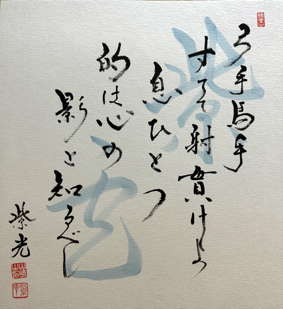 弓手馬手
すてて射貫けよ
息ひとつ
的は心の
影と知るべし
紫光
紫